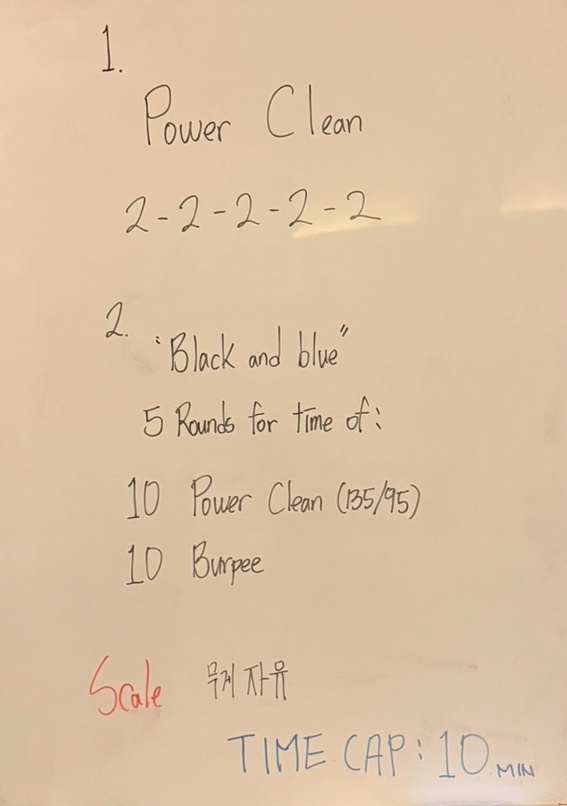 1.
Power Clean
2-2-2-2-2
2.
"Black and blue"
5 Rounds for time of:
10 Power Clean (135/95)
10 Burpee
Scale 무게 자유
TIME CAP: 10 MIN